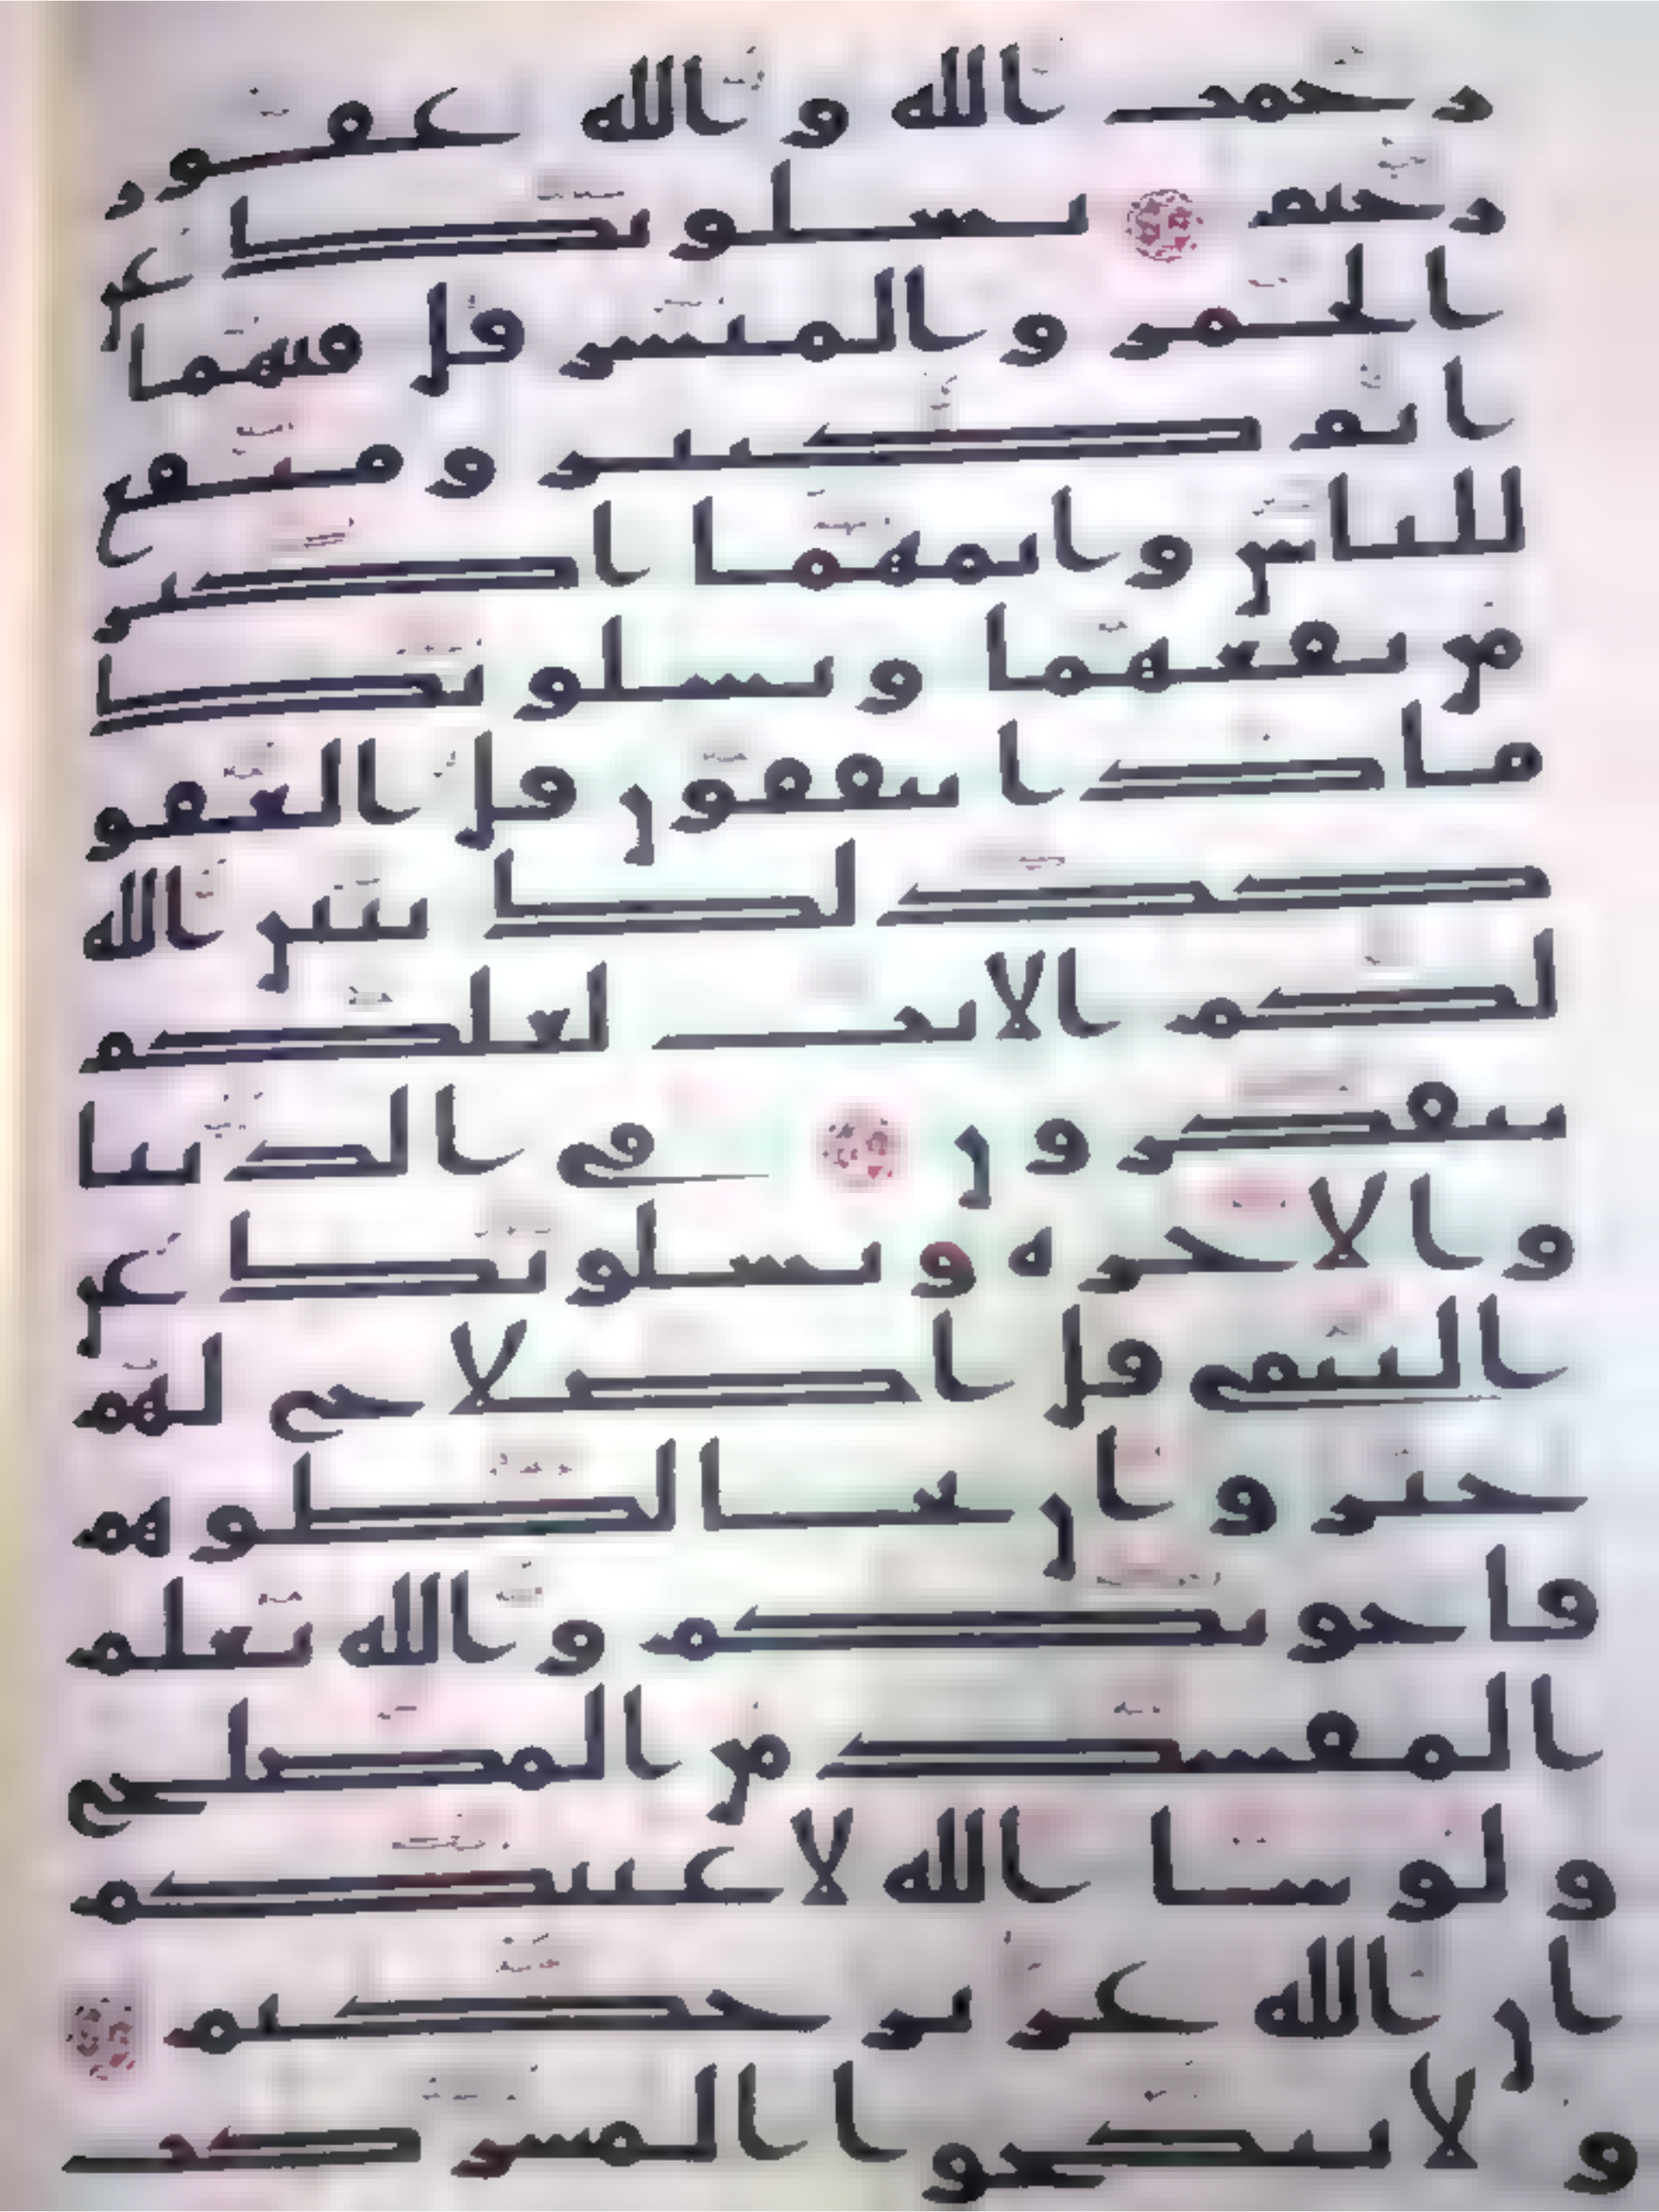 رحمت الله والله غفور
رحيم يسلونك عن
الخمر والميسر قل فيهما
اثم كبير ومنفع
للناس واثمهما اكبر
من نفعهما ويسلونك
ماذا ينفقون قل العفو
كذلك يبين الله
لكم الايت لعلكم
تتفكرون في الدنيا
والاخرة ويسلونك عن
اليتمى قل اصلاح لهم
خير وان تخالطوهم
فاخونكم والله يعلم
المفسد من المصلح
ولو شا الله لاعنتكم
ان الله عزيز حكيم
ولا تنكحوا المشركت